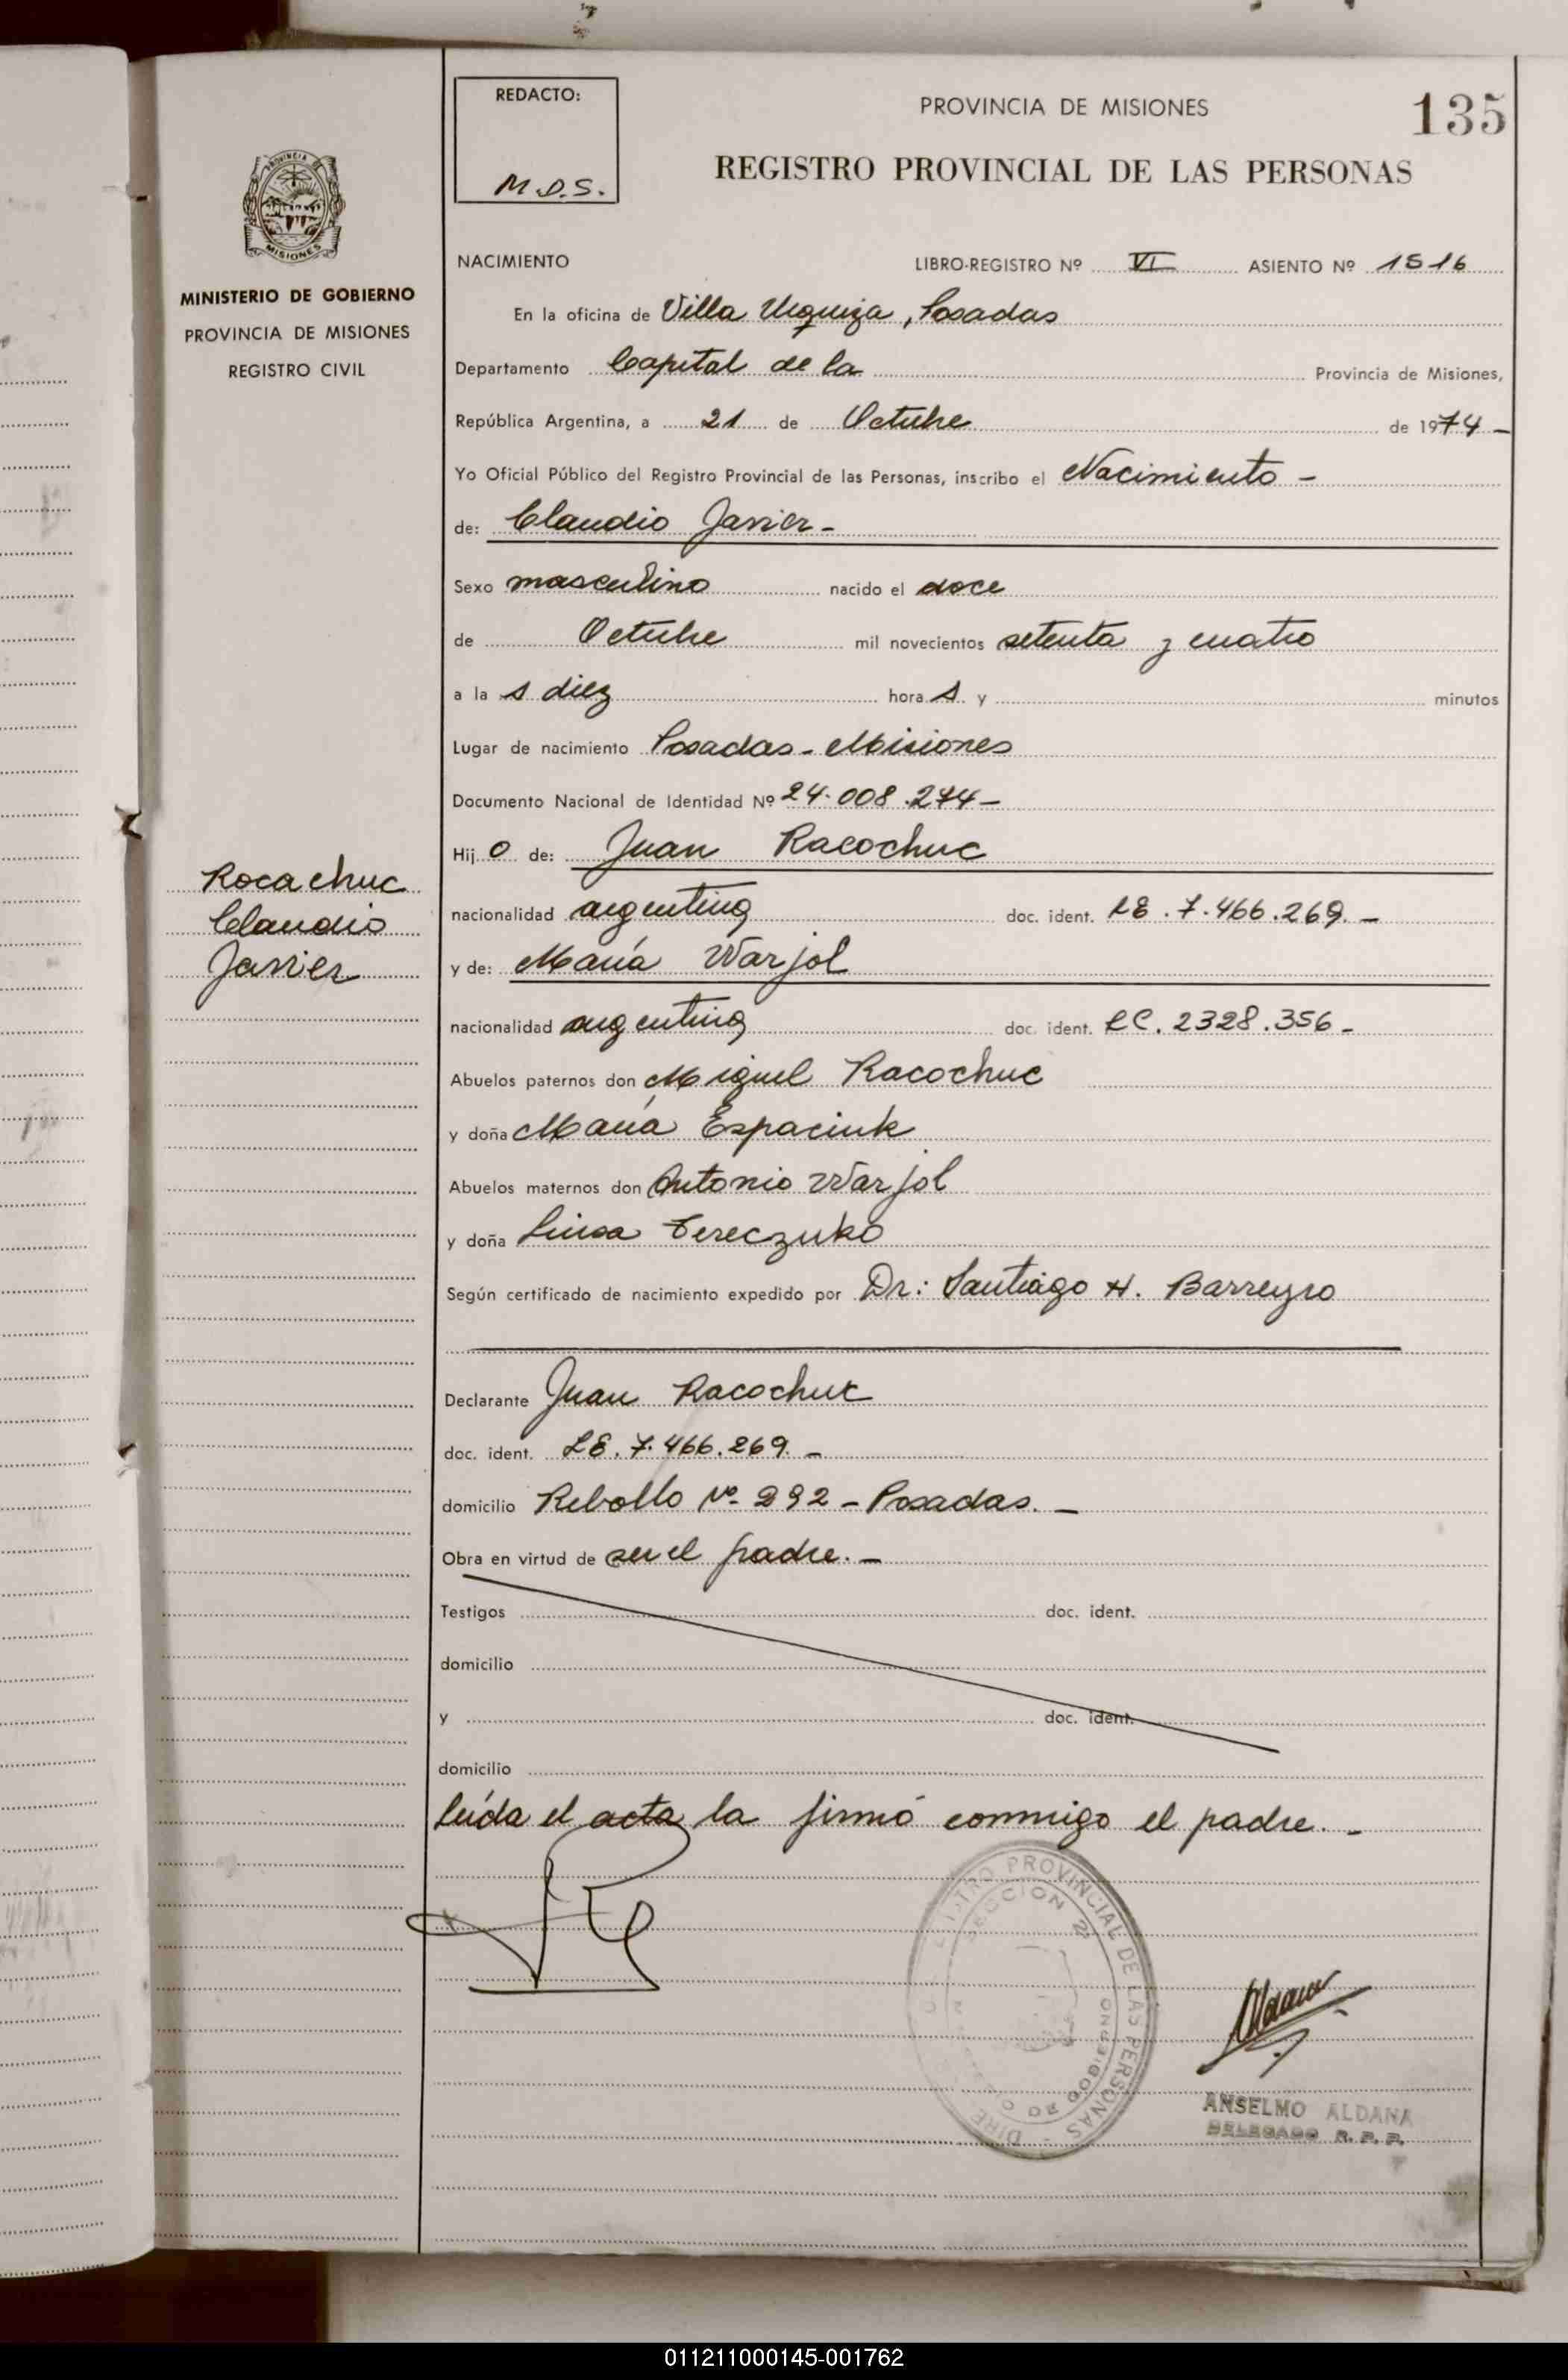 REDACTO:
M.D.S.
PROVINCIA DE MISIONES
135
REGISTRO PROVINCIAL DE LAS PERSONAS
MISIONES
MINISTERIO DE GOBIERNO
PROVINCIA DE MISIONES
REGISTRO CIVIL
Rocachuc
Claudio
Javier
NACIMIENTO LIBRO-REGISTRO Nº VI ASIENTO Nº 1516
En la oficina de Villa Urquiza, Posadas
Departamento Capital de la Provincia de Misiones,
República Argentina, a 21 de Octubre de 1974 -
Yo Oficial Público del Registro Provincial de las Personas, inscribo el Nacimiento -
de: Claudio Javier -
Sexo masculino nacido el doce
de Octubre mil novecientos setenta y cuatro
a la s diez hora s y minutos
Lugar de nacimiento Posadas - Misiones
Documento Nacional de Identidad Nº 24.008.274 -
Hij o de: Juan Racochuc
nacionalidad argentina doc. ident. LE. 7.466.269. -
y de: María Warjol
nacionalidad argentina doc. ident. LC. 2328.356 -
Abuelos paternos don Miguel Racochuc
y doña María Espaciuk
Abuelos maternos don Antonio Warjol
y doña Luisa Tereczuko
Según certificado de nacimiento expedido por Dr: Santiago H. Barreyro
Declarante Juan Racochuc
doc. ident. LE. 7.466.269. -
domicilio Rebollo Nº 292 - Posadas. -
Obra en virtud de ser el padre. -
Testigos doc. ident.
domicilio
y doc. ident.
domicilio
leída el acta la firmó conmigo el padre. -
PROVINCIAL DE LAS PERSONAS
SECCION 2ª
ANSELMO ALDANA
DELEGADO R. P. P.
011211000145-001762